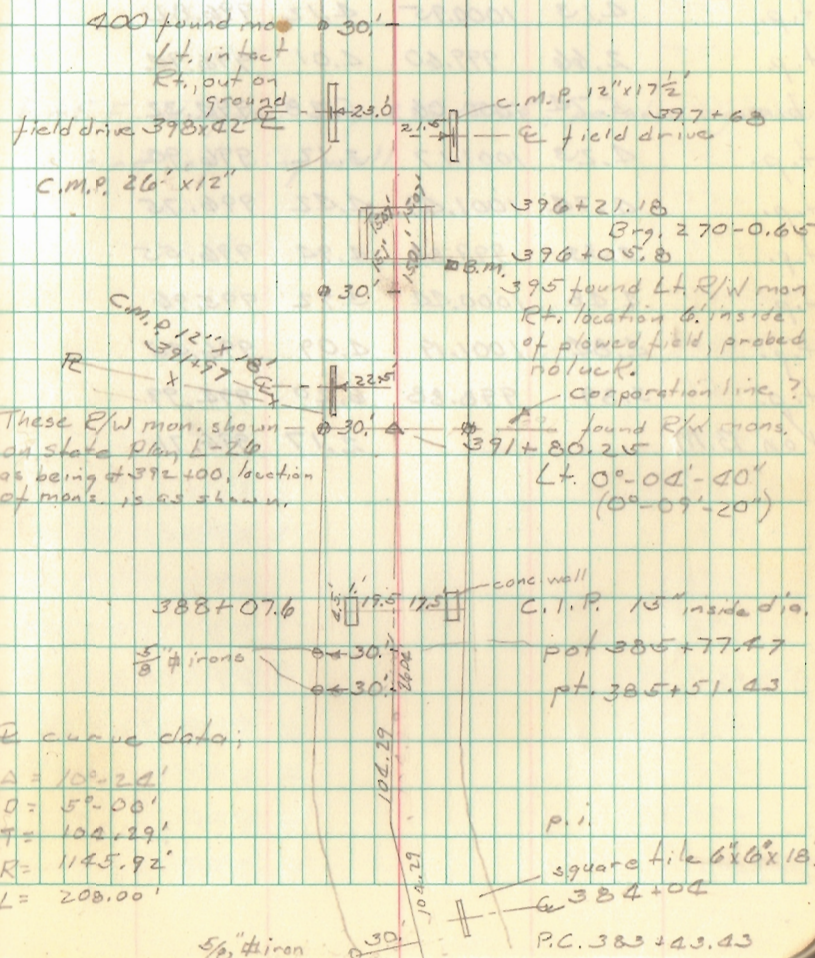 400 found mon
30.'
Lt. intact
Rt., out on
ground
23.0'
field drive 398+42 ℄
C.M.P. 12"x17½'
397+68
21.5
℄ field drive
C.M.P. 26' x12"
15.07' 15.07'
15.1' 15.01'
396+21.18
Brg. 270-0.65
396+05.8
B.M.
30.'
395 found Lt. R/W mon
Rt. location 6' inside
of plowed field, probed
no luck.
C.M.P. 12" x 18'
391+97
℄
22.5'
corporation line ?
These R/W mon. shown
on State Plan L-26
as being at 392+00, location
of mons. is as shown.
30.'
found R/W mons.
391+80.25
Lt. 0°-04'-40"
(0°-09'-20")
388+07.6
4.5' 1.' 19.5 17.5'
conc. wall
C.I.P. 15" inside dia.
5/8" ϕ irons
30.'
26.04
pot 385+77.47
30.'
pt. 385+51.43
℄ curve data;
Δ = 10°-24'
D = 5°-00'
T = 104.29'
R = 1145.92'
L = 208.00'
104.29
104.29
p.i.
square tile 6"x6"x18
℄ 384+04
5/8" ϕ iron
30.'
P.C. 383+43.43